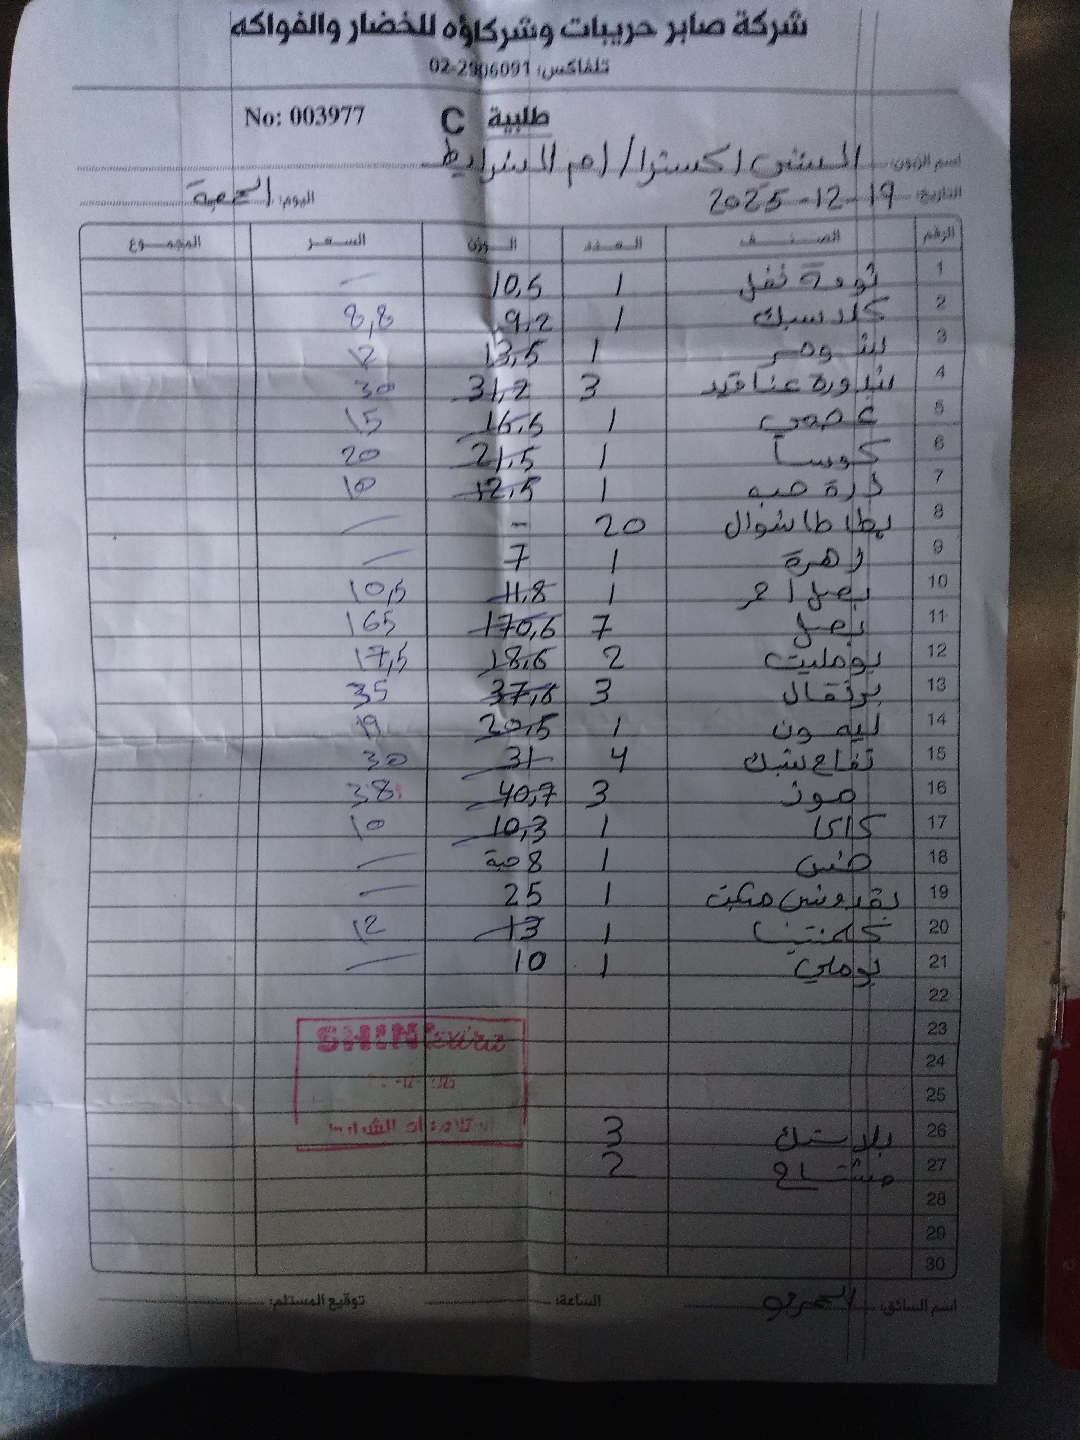 شركة صابر حريبات وشركاؤه للخضار والفواكه
تلفاكس: 02-2906091
طلبية C No: 003977
اسم الزبون: الشني اكسترا / ام الشرايط
التاريخ: 19-12-2025 اليوم: الجمعة
الرقم الصنف العدد الوزن السعر المجموع
1 ثومة نفل 1 10,5 —
2 1 9,2 8,8
3 شومر 1 13,5 12
4 بندورة عناقيد 3 31,2 30
5 1 16,5 15
6 كوسا 1 21,5 20
7 ذرة حبه 1 12,5 10
8 بطاطا شوال 20 - —
9 زهرة 1 7 —
10 بصل احمر 1 11,8 10,5
11 بصل 7 170,6 165
12 بومليت 2 18,6 17,5
13 برتقال 3 37,8 35
14 ليمون 1 20,5 19
15 تفاح شبك 4 31 30
16 موز 3 40,7 38
17 كاكا 1 10,3 10
18 خس 1 8 حبة —
19 بقدونس مكبت 1 25 —
20 كلمنتينا 1 13 12
21 بوملي 1 10 —
22
23
24
25
SHINI extra
26 بلاستك 3
27 مشتاح 2
28
29
30
اسم السائق: الساعة: توقيع المستلم: